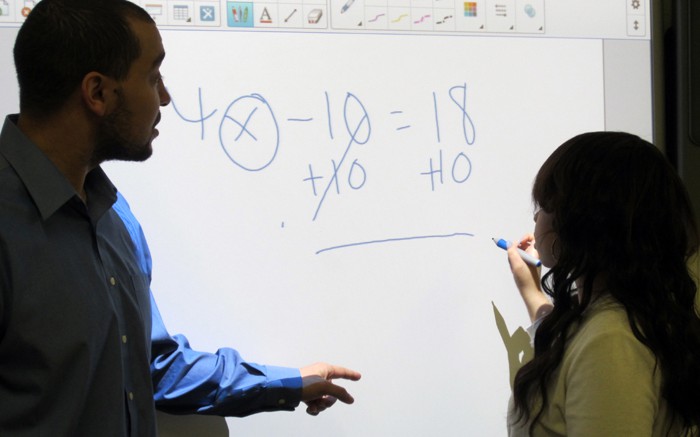 4x - 10 = 18
+10 +10